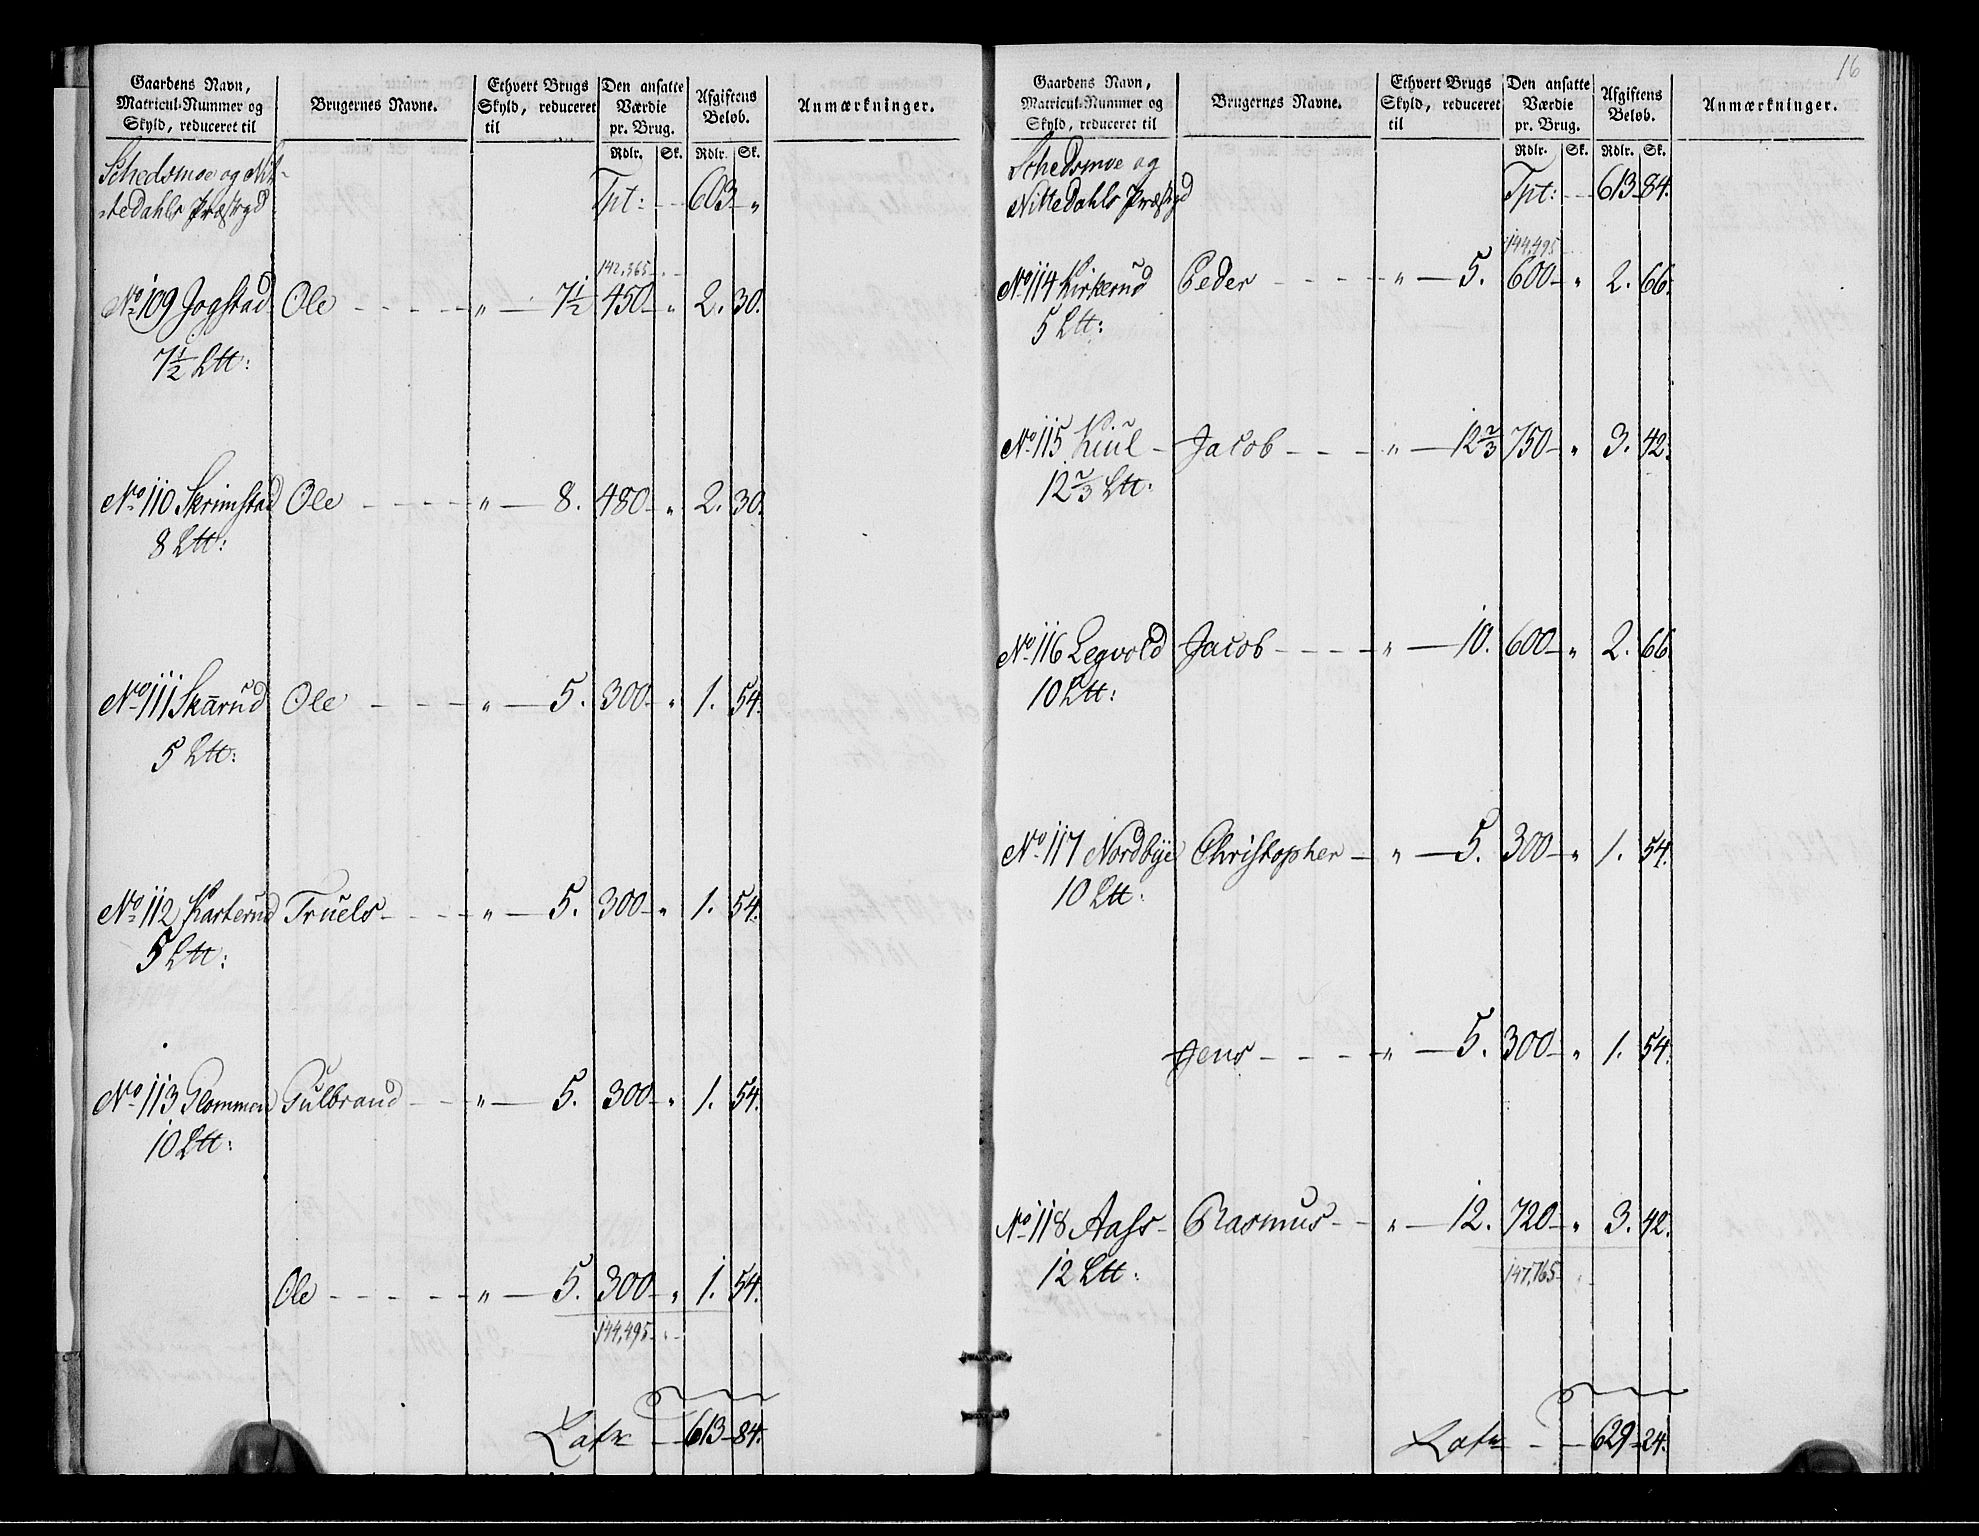 Gaardens Navn, Matricul-Nummer og Skyld, reduceret til | Brugernes Navne. | Ethvert Brugs Skyld, reduceret til | Den ansatte Værdie pr. Brug. | Afgiftens Beløb. | Anmærkninger.
Rdlr. | Sk. | Rdlr. | Sk.
Schedsmoe og Nit-
tedahls Præstgd
Tpt: - - 603 - "
142,365 - " -
No 109 Jogstad Ole - - - - " — 7½ 450 - " 2. 30.
7½ Ltt:
No 110 Skrimstad Ole - - - - " — 8. 480 - " 2. 30.
8 Ltt:
No 111 Skarud Ole - - - - " — 5. 300 - " 1. 54.
5 Ltt:
No 112 Karterud Truels - - - - " — 5. 300 - " 1. 54.
5 Ltt:
No 113 Glommen Gulbrand - - " — 5. 300 - " 1. 54.
10 Ltt:
Ole - - - - - " — 5. 300 - " 1. 54.
144,495 - " -
Lats — 613 - 84.
16
Gaardens Navn, Matricul-Nummer og Skyld, reduceret til | Brugernes Navne. | Ethvert Brugs Skyld, reduceret til | Den ansatte Værdie pr. Brug. | Afgiftens Beløb. | Anmærkninger.
Rdlr. | Sk. | Rdlr. | Sk.
Schedsmoe og
Nittedahls Præstgd
Tpt: - - 613 - 84.
144,495
No 114 Kirkerud Peder - - - - " — 5. 600 - " 2. 66.
5 Ltt:
No 115 Kiul - Jacob - - - " — 12⅔ 750 - " 3. 42.
12⅔ Ltt:
No 116 Legvold Jacob - - - - " — 10. 600 - " 2. 66.
10 Ltt:
No 117 Nordbye Christopher - " — 5. 300 - " 1. 54.
10 Ltt:
Jens - - - - " — 5. 300 - " 1. 54.
No 118 Aass - Rasmus - - " — 12. 720 - " 3. 42.
12 Ltt:
147,765 -
Lats - — 629 - 24.